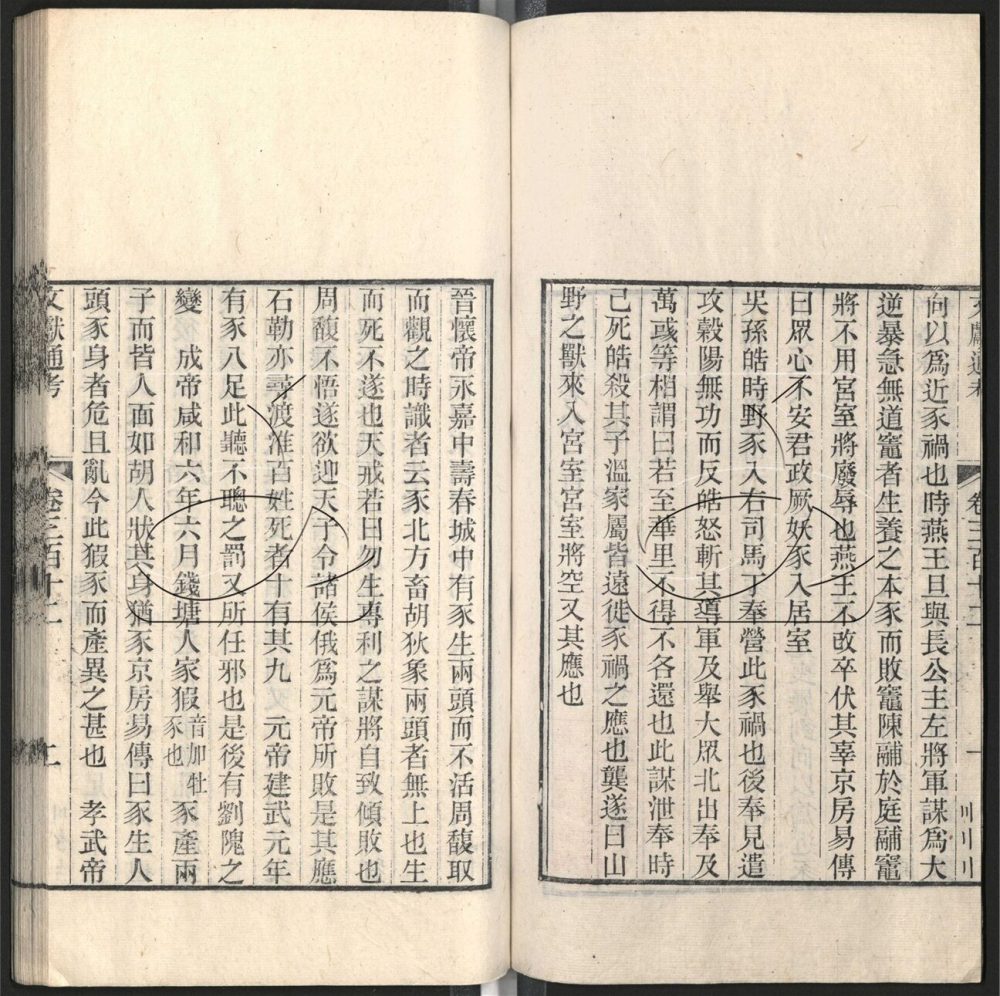 文獻通考 卷三百十二
向以爲近豕禍也時燕王旦與長公主左將軍謀爲大
逆暴急無道竈者生養之本豕而敗竈陳鬴於庭鬴竈
將不用宮室將廢辱也燕王不改卒伏其辜京房易傳
曰眾心不安君政厥妖豕入居室
吳孫皓時野豕入右司馬丁奉營此豕禍也後奉見遣
攻穀陽無功而反皓怒斬其導軍及舉大眾北出奉及
萬彧等相謂曰若至華里不得不各還也此謀泄奉時
已死皓殺其子溫家屬皆遠徙豕禍之應也龔遂曰山
野之獸來入宮室宮室將空又其應也
晉懷帝永嘉中壽春城中有豕生兩頭而不活周馥取
而觀之時識者云豕北方畜胡狄象兩頭者無上也生
而死不遂也天戒若曰勿生專利之謀將自致傾敗也
周馥不悟遂欲迎天子令諸侯俄爲元帝所敗是其應
石勒亦尋渡淮百姓死者十有其九 元帝建武元年
有豕八足此聽不聰之罰又所任邪也是後有劉隗之
變 成帝咸和六年六月錢塘人家豭音加牡豕也豕產兩
子而皆人面如胡人狀其身猶豕京房易傳曰豕生人
頭豕身者危且亂今此豭豕而產異之甚也 孝武帝
文獻通考 卷三百十二